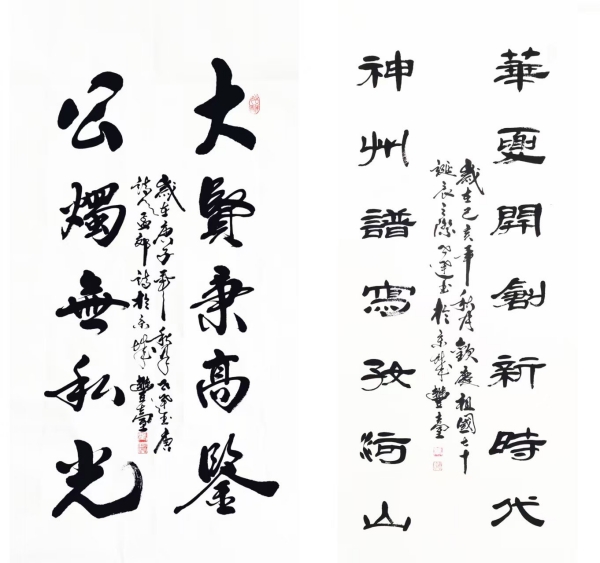 大賢秉高鑒
公燭無私光
歲在庚子年秋月書唐
詩人孟郊詩於京城豐臺
華夏開創新時代
神州譜寫好河山
歲在己亥年秋月歡慶祖國七十
誕辰之際書於京城豐臺